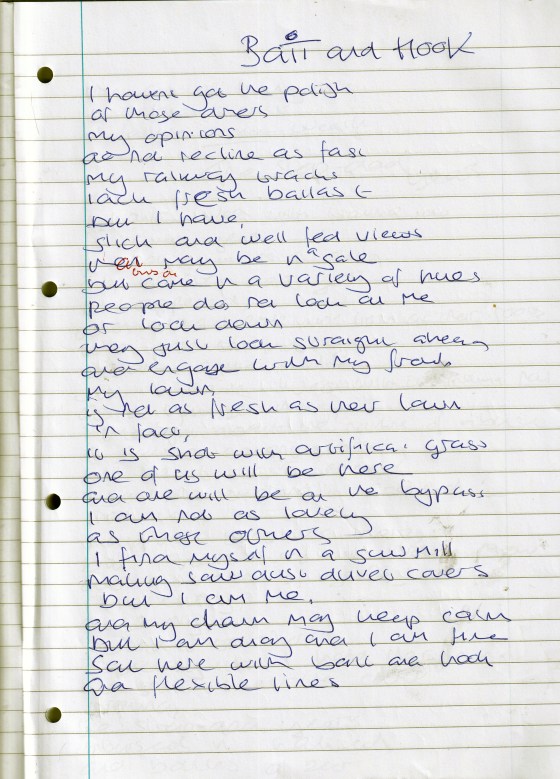 Bait and Hook
I havent got the polish
of those others
my opinions
do not recline as fast
my railway tracks
lack fresh ballast
but I have,
slick and well fed views
may be in a gale
but come in a variety of hues
people do not look at me
or look down
they just look straight ahead
and engage with my frown
my lawn
is not as fresh as new lawn
in fact,
it is shot with artificial grass
one of us will be here
and one will be on the bypass
I am not as lovely
as these others
I find myself in a sawmill
making sawdust duvet covers
but I am me,
and my charm may keep calm
but I am okay and I am fine
Sat here with bait and hook
and flexible lines